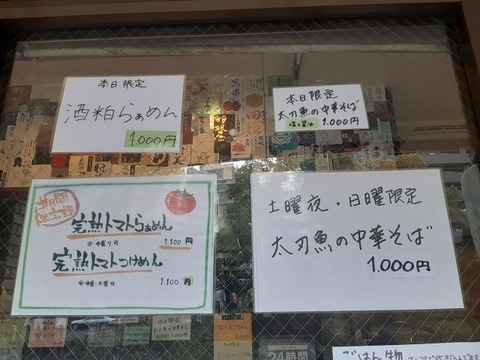 本日限定
酒粕らぁめん
1.000円
本日限定
太刀魚の中華そば
1.000円
期間限定
完熟トマトらぁめん
1.100円
完熟トマトつけめん
1.100円
土曜夜・日曜限定
太刀魚の中華そば
1.000円
24時間
ごはん物